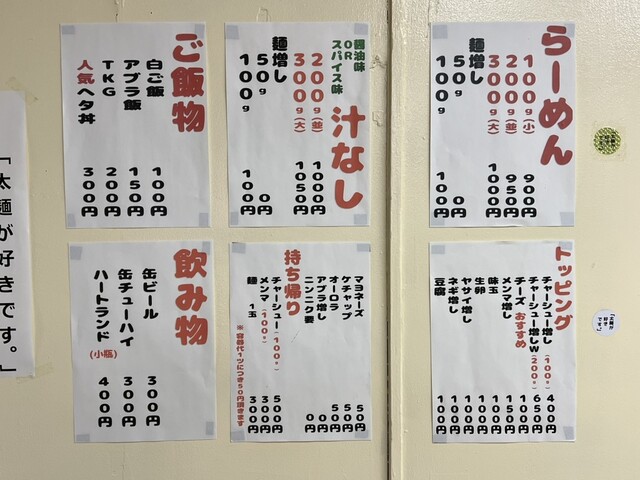 らーめん
100g(小) 900円
200g(並) 950円
300g(大) 1000円
麺増し
50g 0円
100g 100円
汁なし
醤油味
OR
スパイス味
200g(並) 1000円
300g(大) 1050円
麺増し
50g 0円
100g 100円
ご飯物
白ご飯 100円
アブラ飯 150円
TKG 200円
人気ヘタ丼 300円
トッピング
チャーシュー増し(100g) 400円
チャーシュー増しW(200g) 650円
チーズ おすすめ
メンマ増し
味玉 100円
生卵
ヤサイ増し 100円
ネギ増し
豆腐 100円
マヨネーズ 50円
ケチャップ 50円
オーロラ 50円
アブラ増し 0円
ニンニク 0円
持ち帰り
チャーシュー(100g) 500円
メンマ(100g) 300円
麺 1玉
※容器代1つにつき50円頂きます
飲み物
缶ビール 300円
缶チューハイ 300円
ハートランド(小瓶) 400円
「太麺が好きです。」
「太麺が
好き
です。」